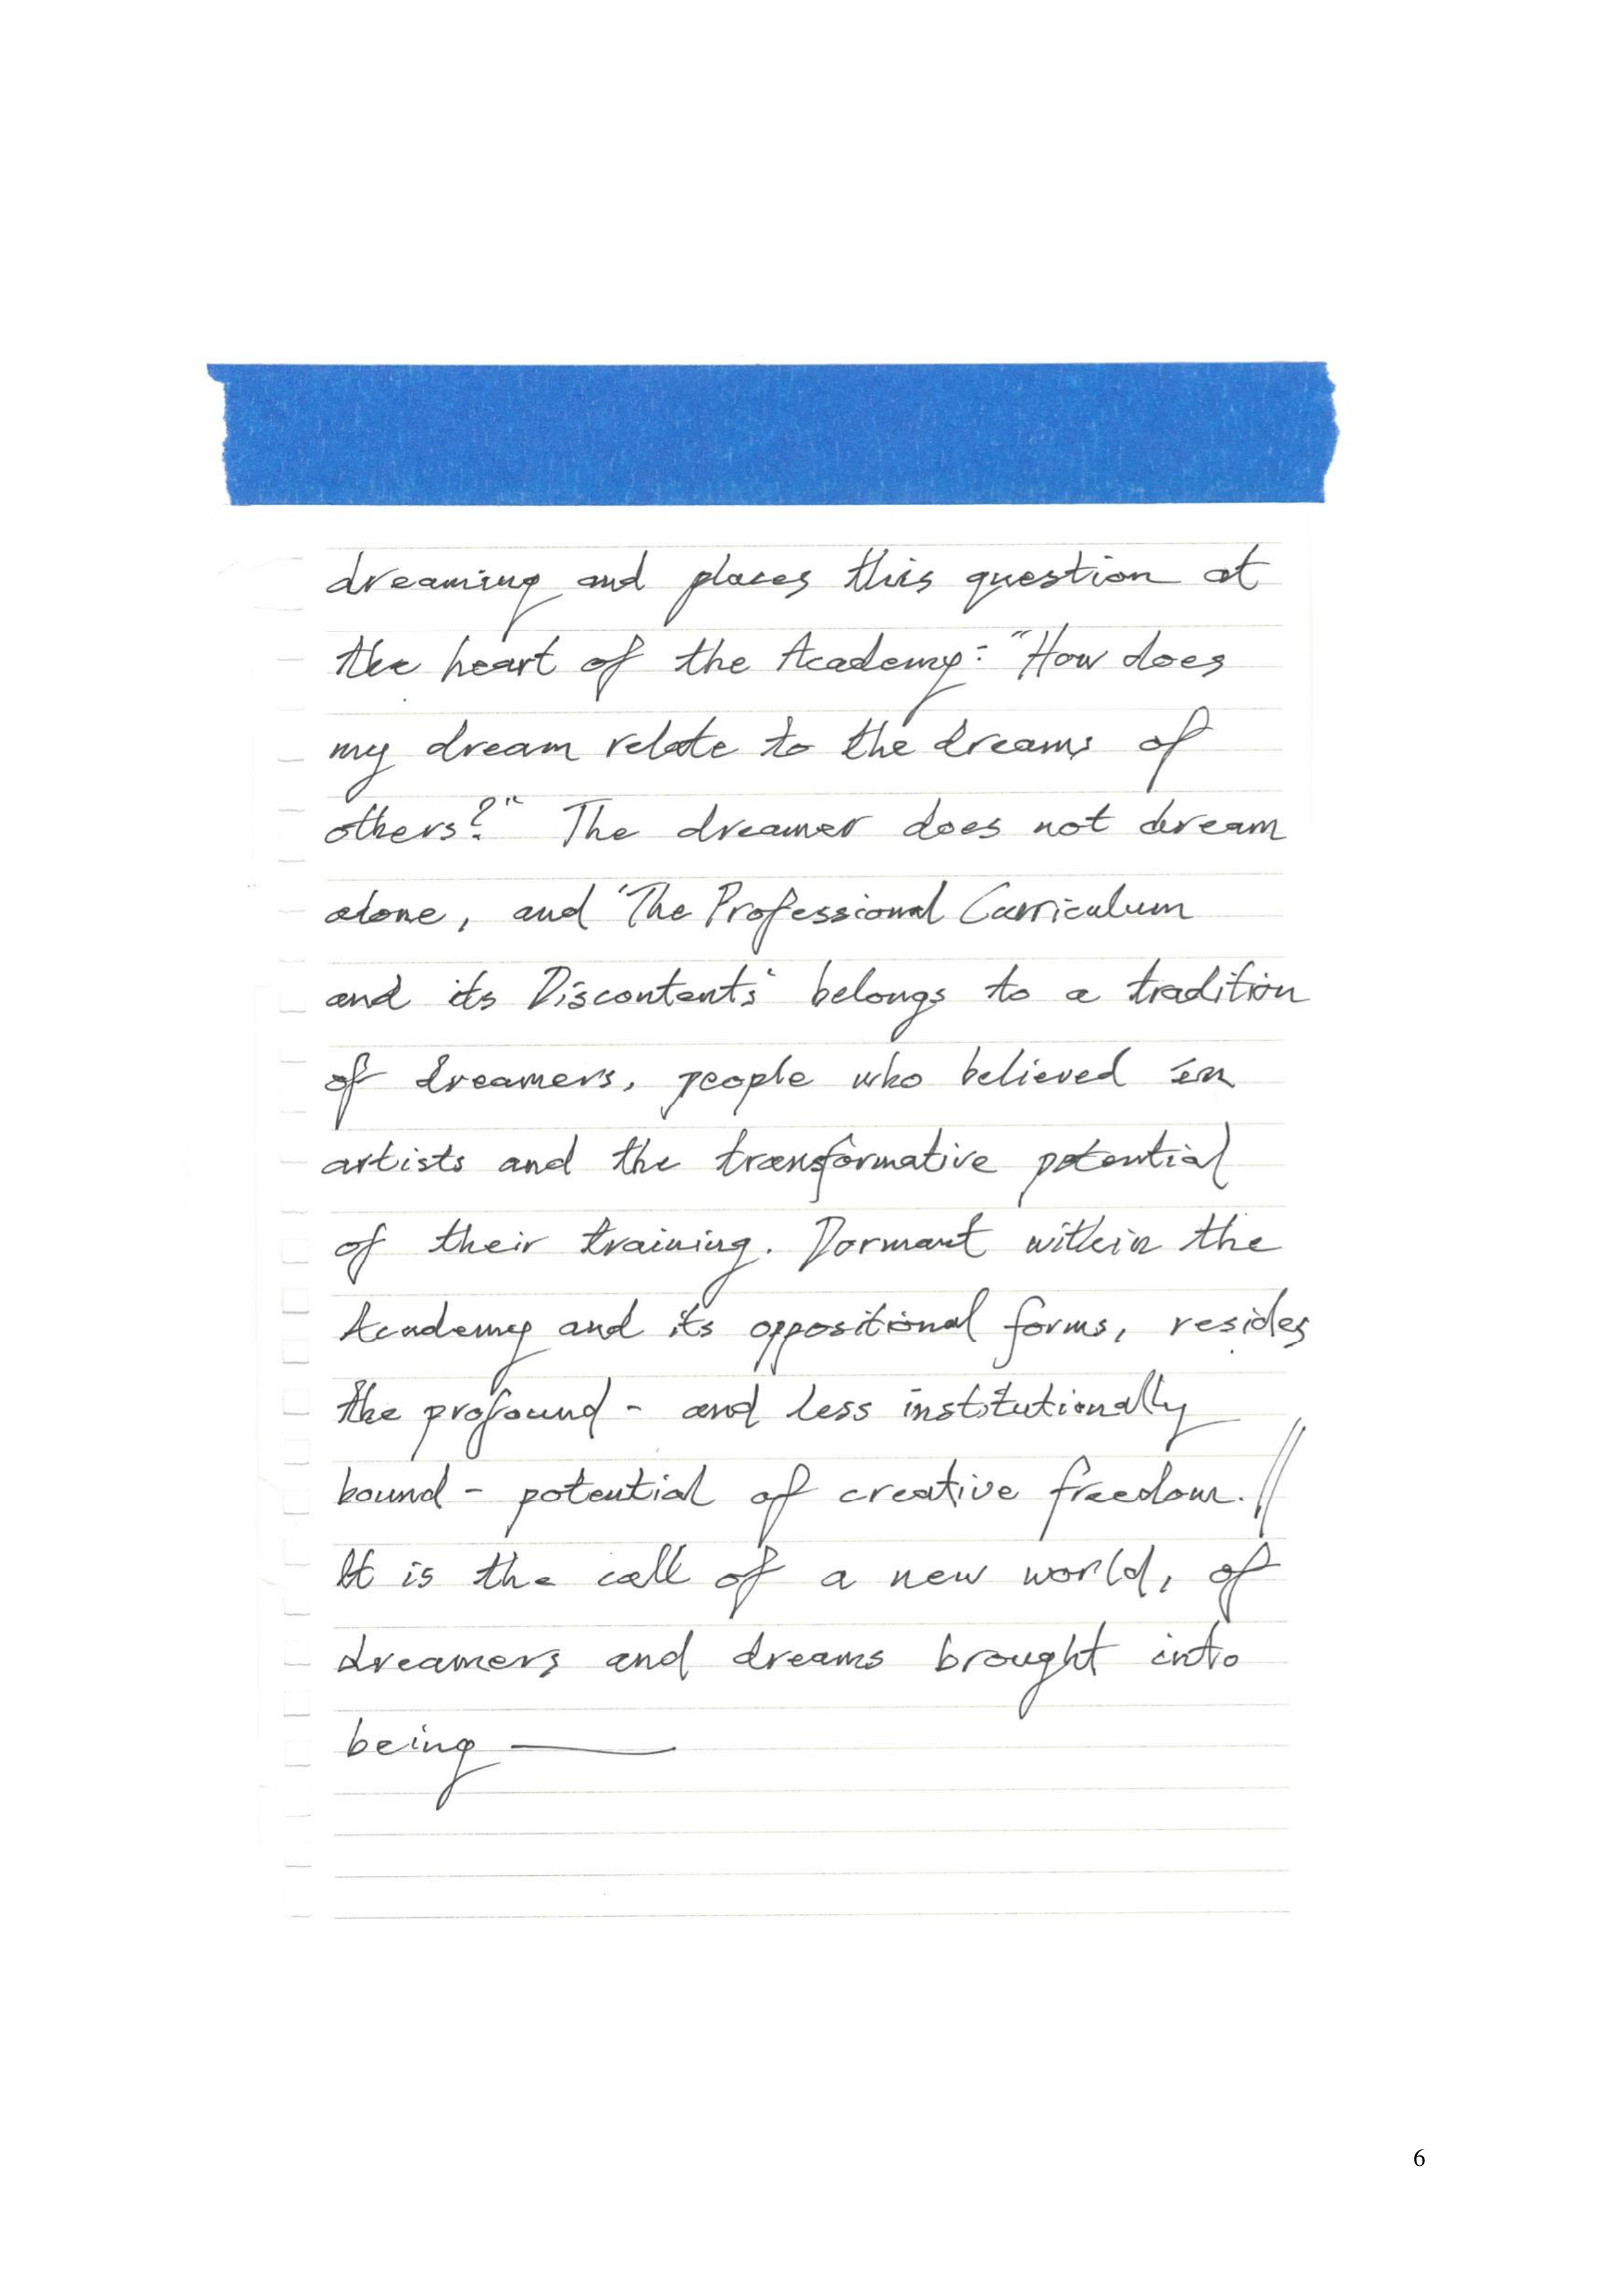 dreaming and places this question at
the heart of the Academy: "How does
my dream relate to the dreams of
others?" The dreamer does not dream
alone, and 'The Professional Curriculum
and its Discontents' belongs to a tradition
of dreamers, people who believed in
artists and the transformative potential
of their training. Dormant within the
Academy and its oppositional forms, resides
the profound - and less institutionally
bound - potential of creative freedom. //
It is the call of a new world, of
dreamers and dreams brought into
being —
6